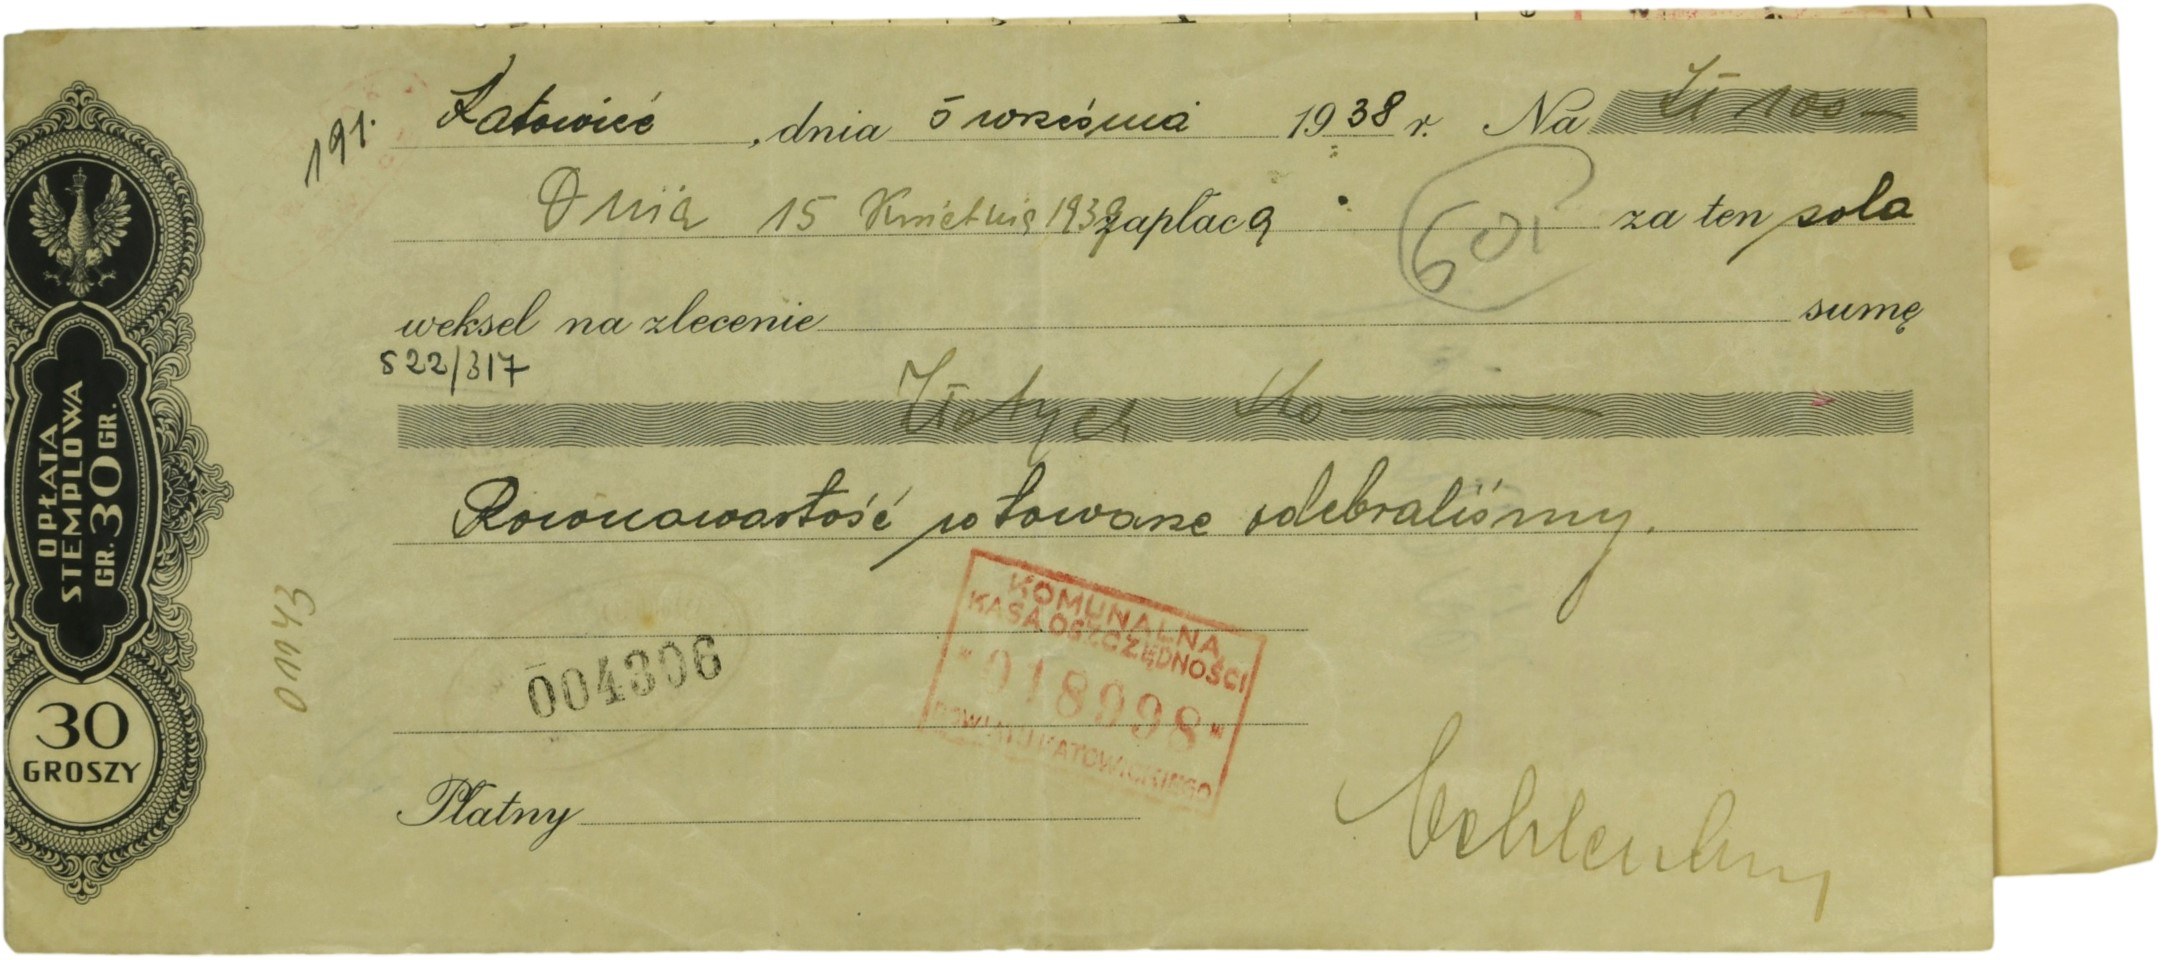 191.
Katowice, dnia 5 września 1938 r. Na Zł 100 —
Dnia 15 Kwietnia 1939 zapłacę za ten sola
601
weksel na zlecenie sumę
522/317
Złotych Sto —
Równowartość w towarze odebraliśmy.
OPŁATA
STEMPLOWA
GR. 30 GR.
30
GROSZY
004306
KOMUNALNA
KASA OSZCZĘDNOŚCI
*018998*
POWIATU KATOWICKIEGO
Płatny